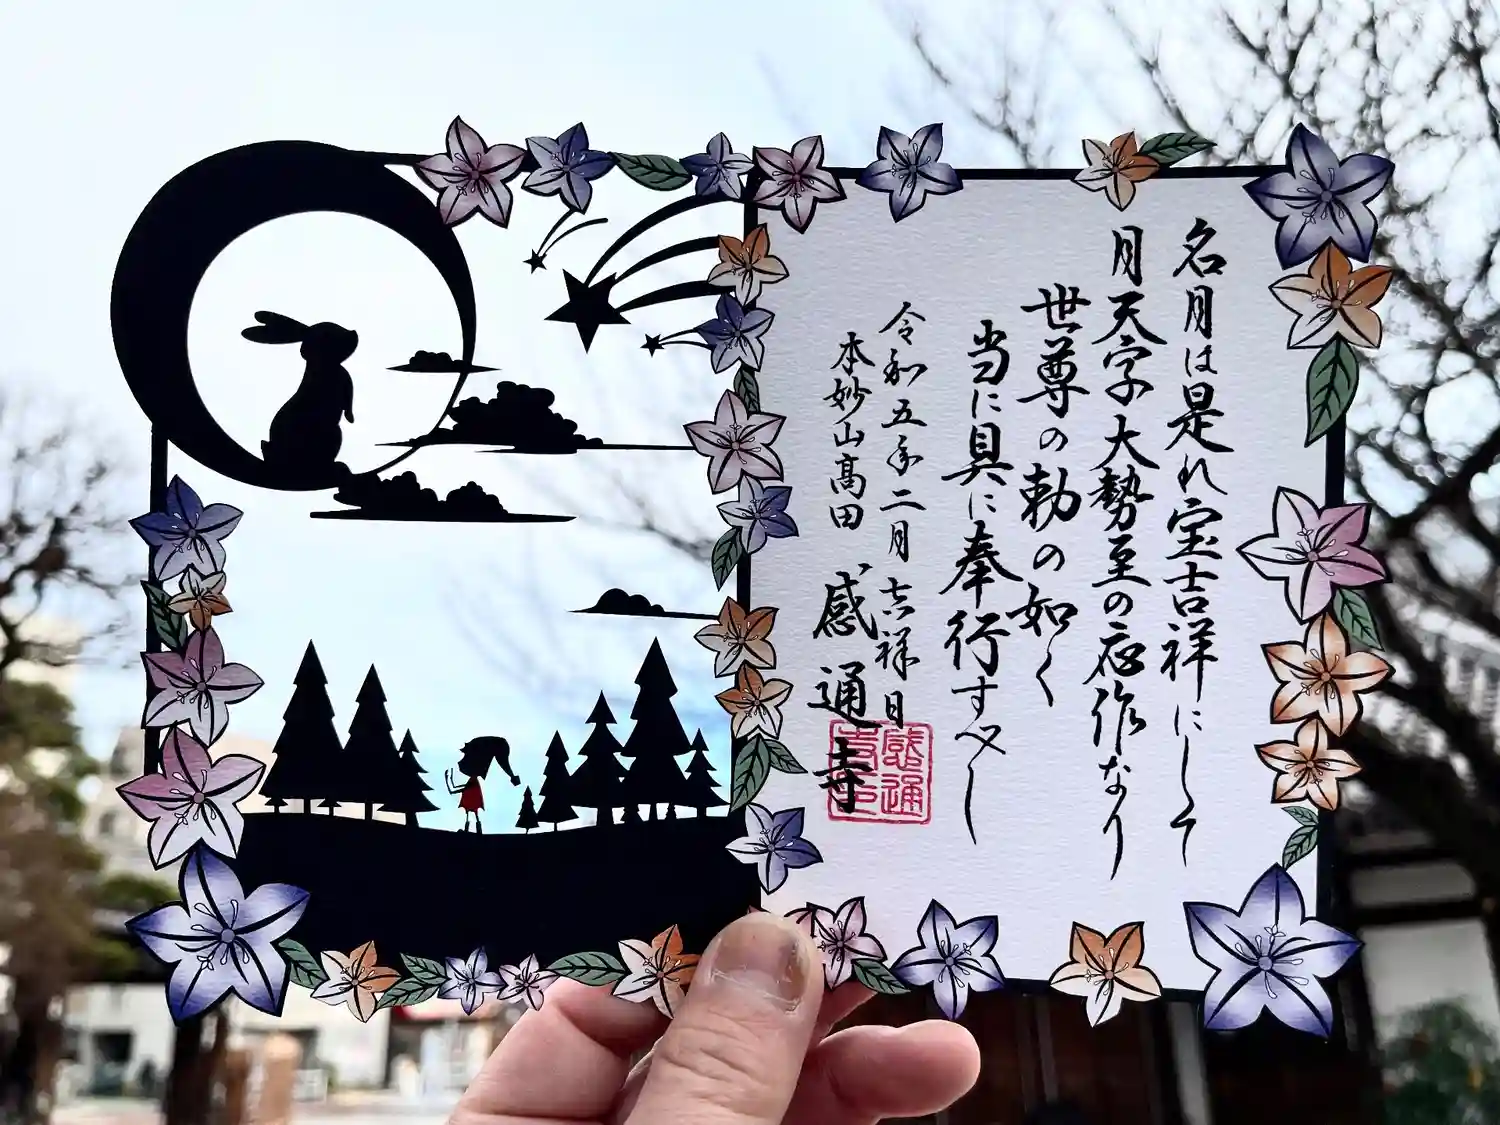 名月は是れ宝吉祥にして
月天子大勢至の応作なり
世尊の勅の如く
当に具に奉行すべし
令和五年二月吉祥日
本妙山高田 感通寺
感通
寺印